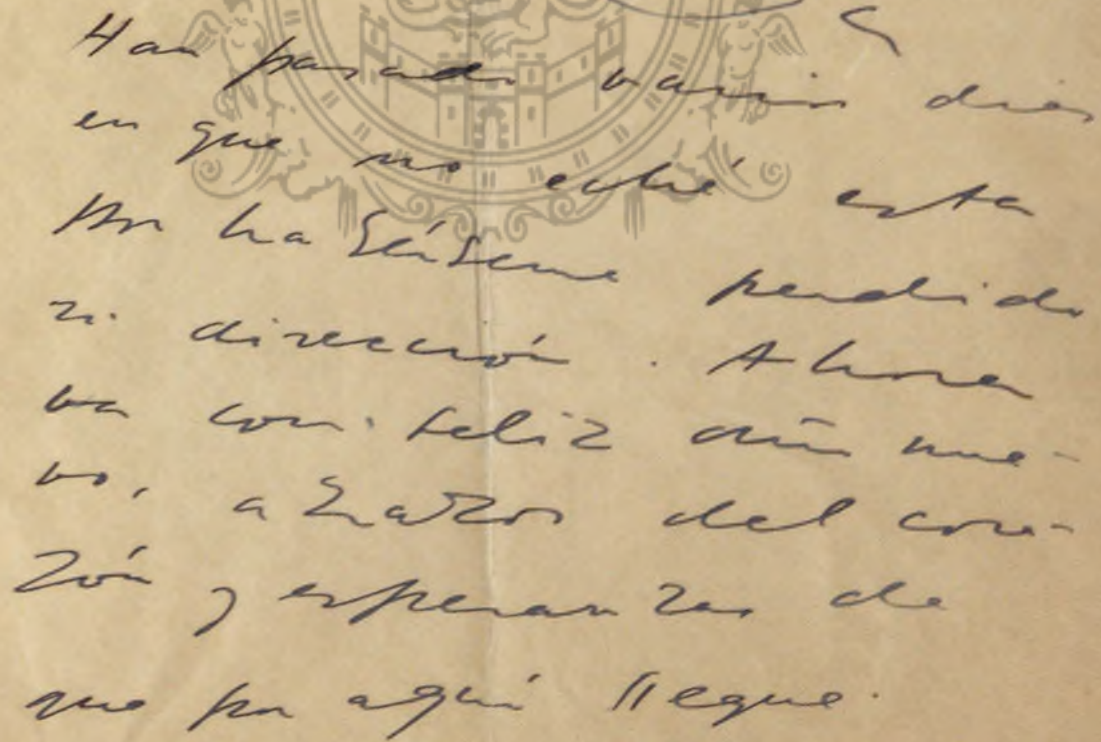 Han pasado varios días
en que no eché esta
por habérseme perdido
su dirección. Ahora
va con feliz año nue-
vo, abrazos del cora-
zón y esperanzas de
que por aquí llegue.